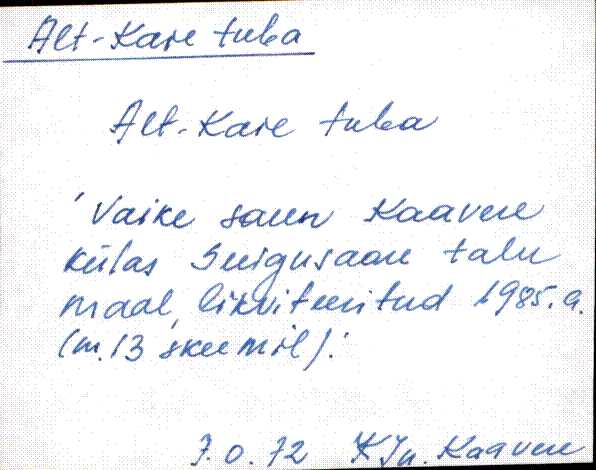 Alt-Kare tuba
Alt-Kare tuba
'Vaike saun Kaavere
külas Suigusaare talu
maal, likviteeritud 1985.a.
(m.13 skeemil).'
J.0.72 KJn. Kaavere